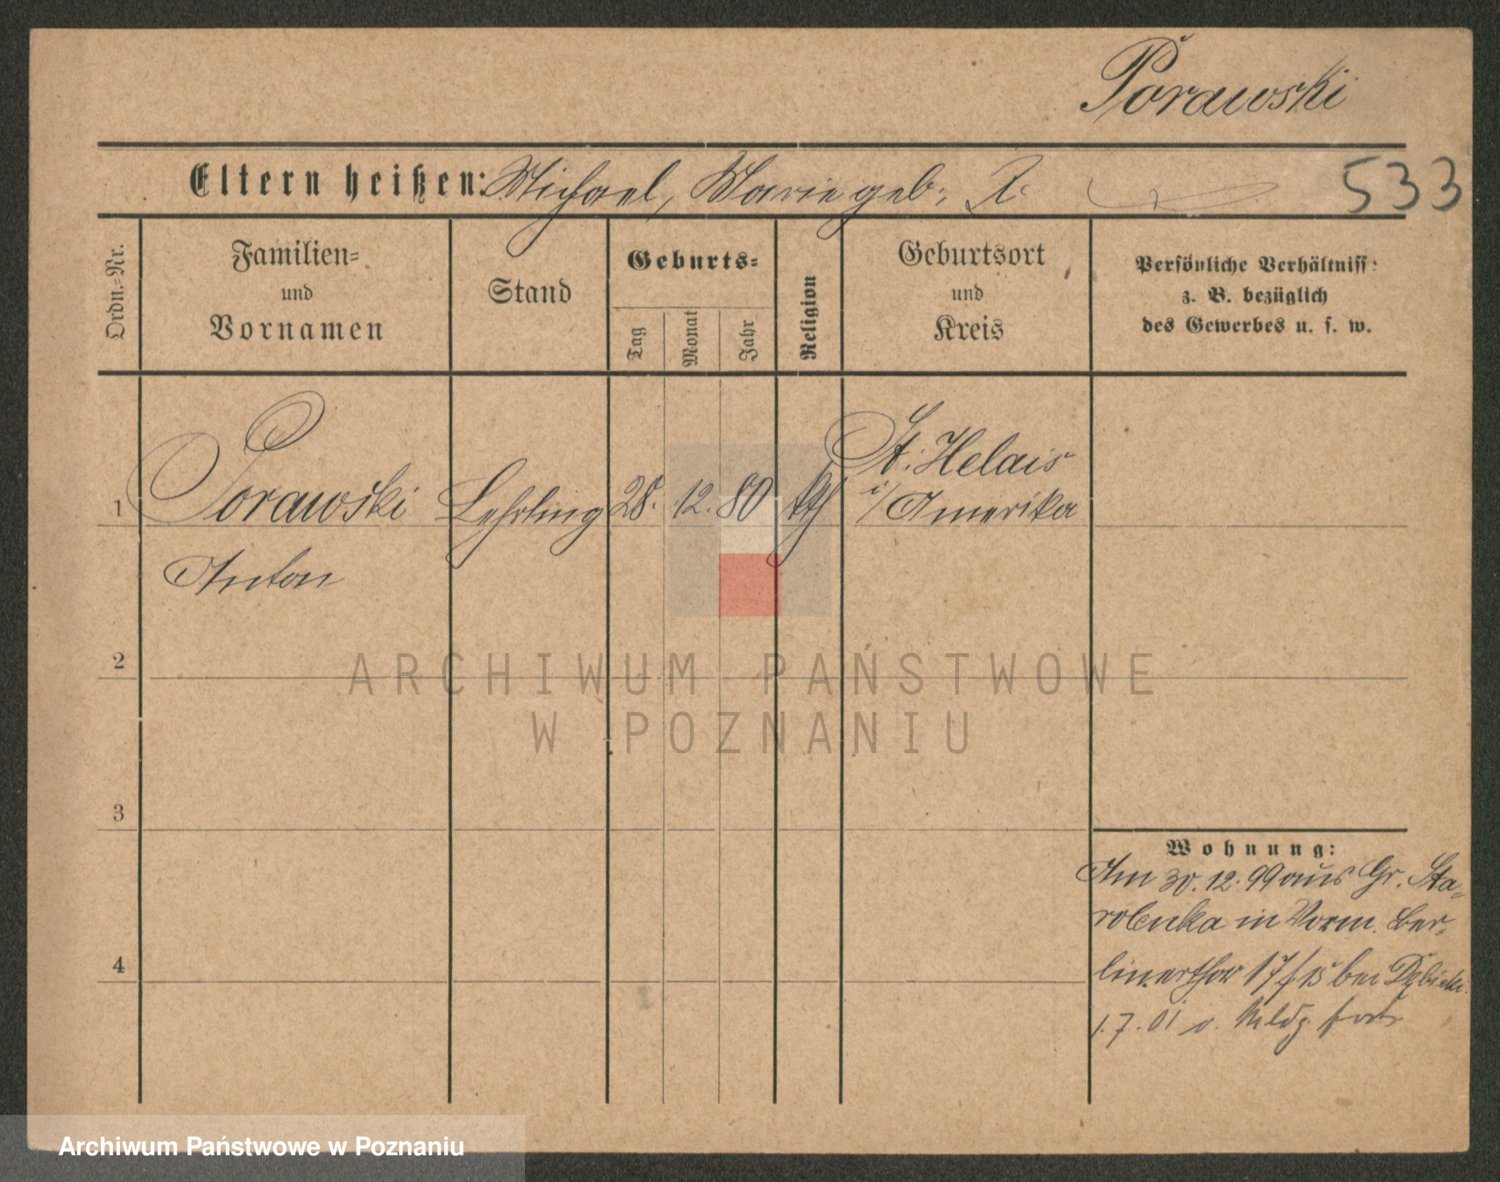 Porawski
Eltern heißen: Michael, Marie geb. R.
533
Ordn.-Nr.
Familien-
und
Vornamen
Stand
Geburts-
Tag
Monat
Jahr
Religion
Geburtsort
und
Kreis
Persönliche Verhältniss:
z. B. bezüglich
des Gewerbes u. s. w.
1
Porawski
Anton
Lehrling
28. 12. 80
kth
St. Helais
i/Amerika
2
3
4
Wohnung:
Am 30.12.99 aus Gr. Sta-
rolenka in Vorm. Ber-
linerthor 17/18 bei
1.7.01 o. Meldg fort
ARCHIWUM PAŃSTWOWE
W POZNANIU
Archiwum Państwowe w Poznaniu